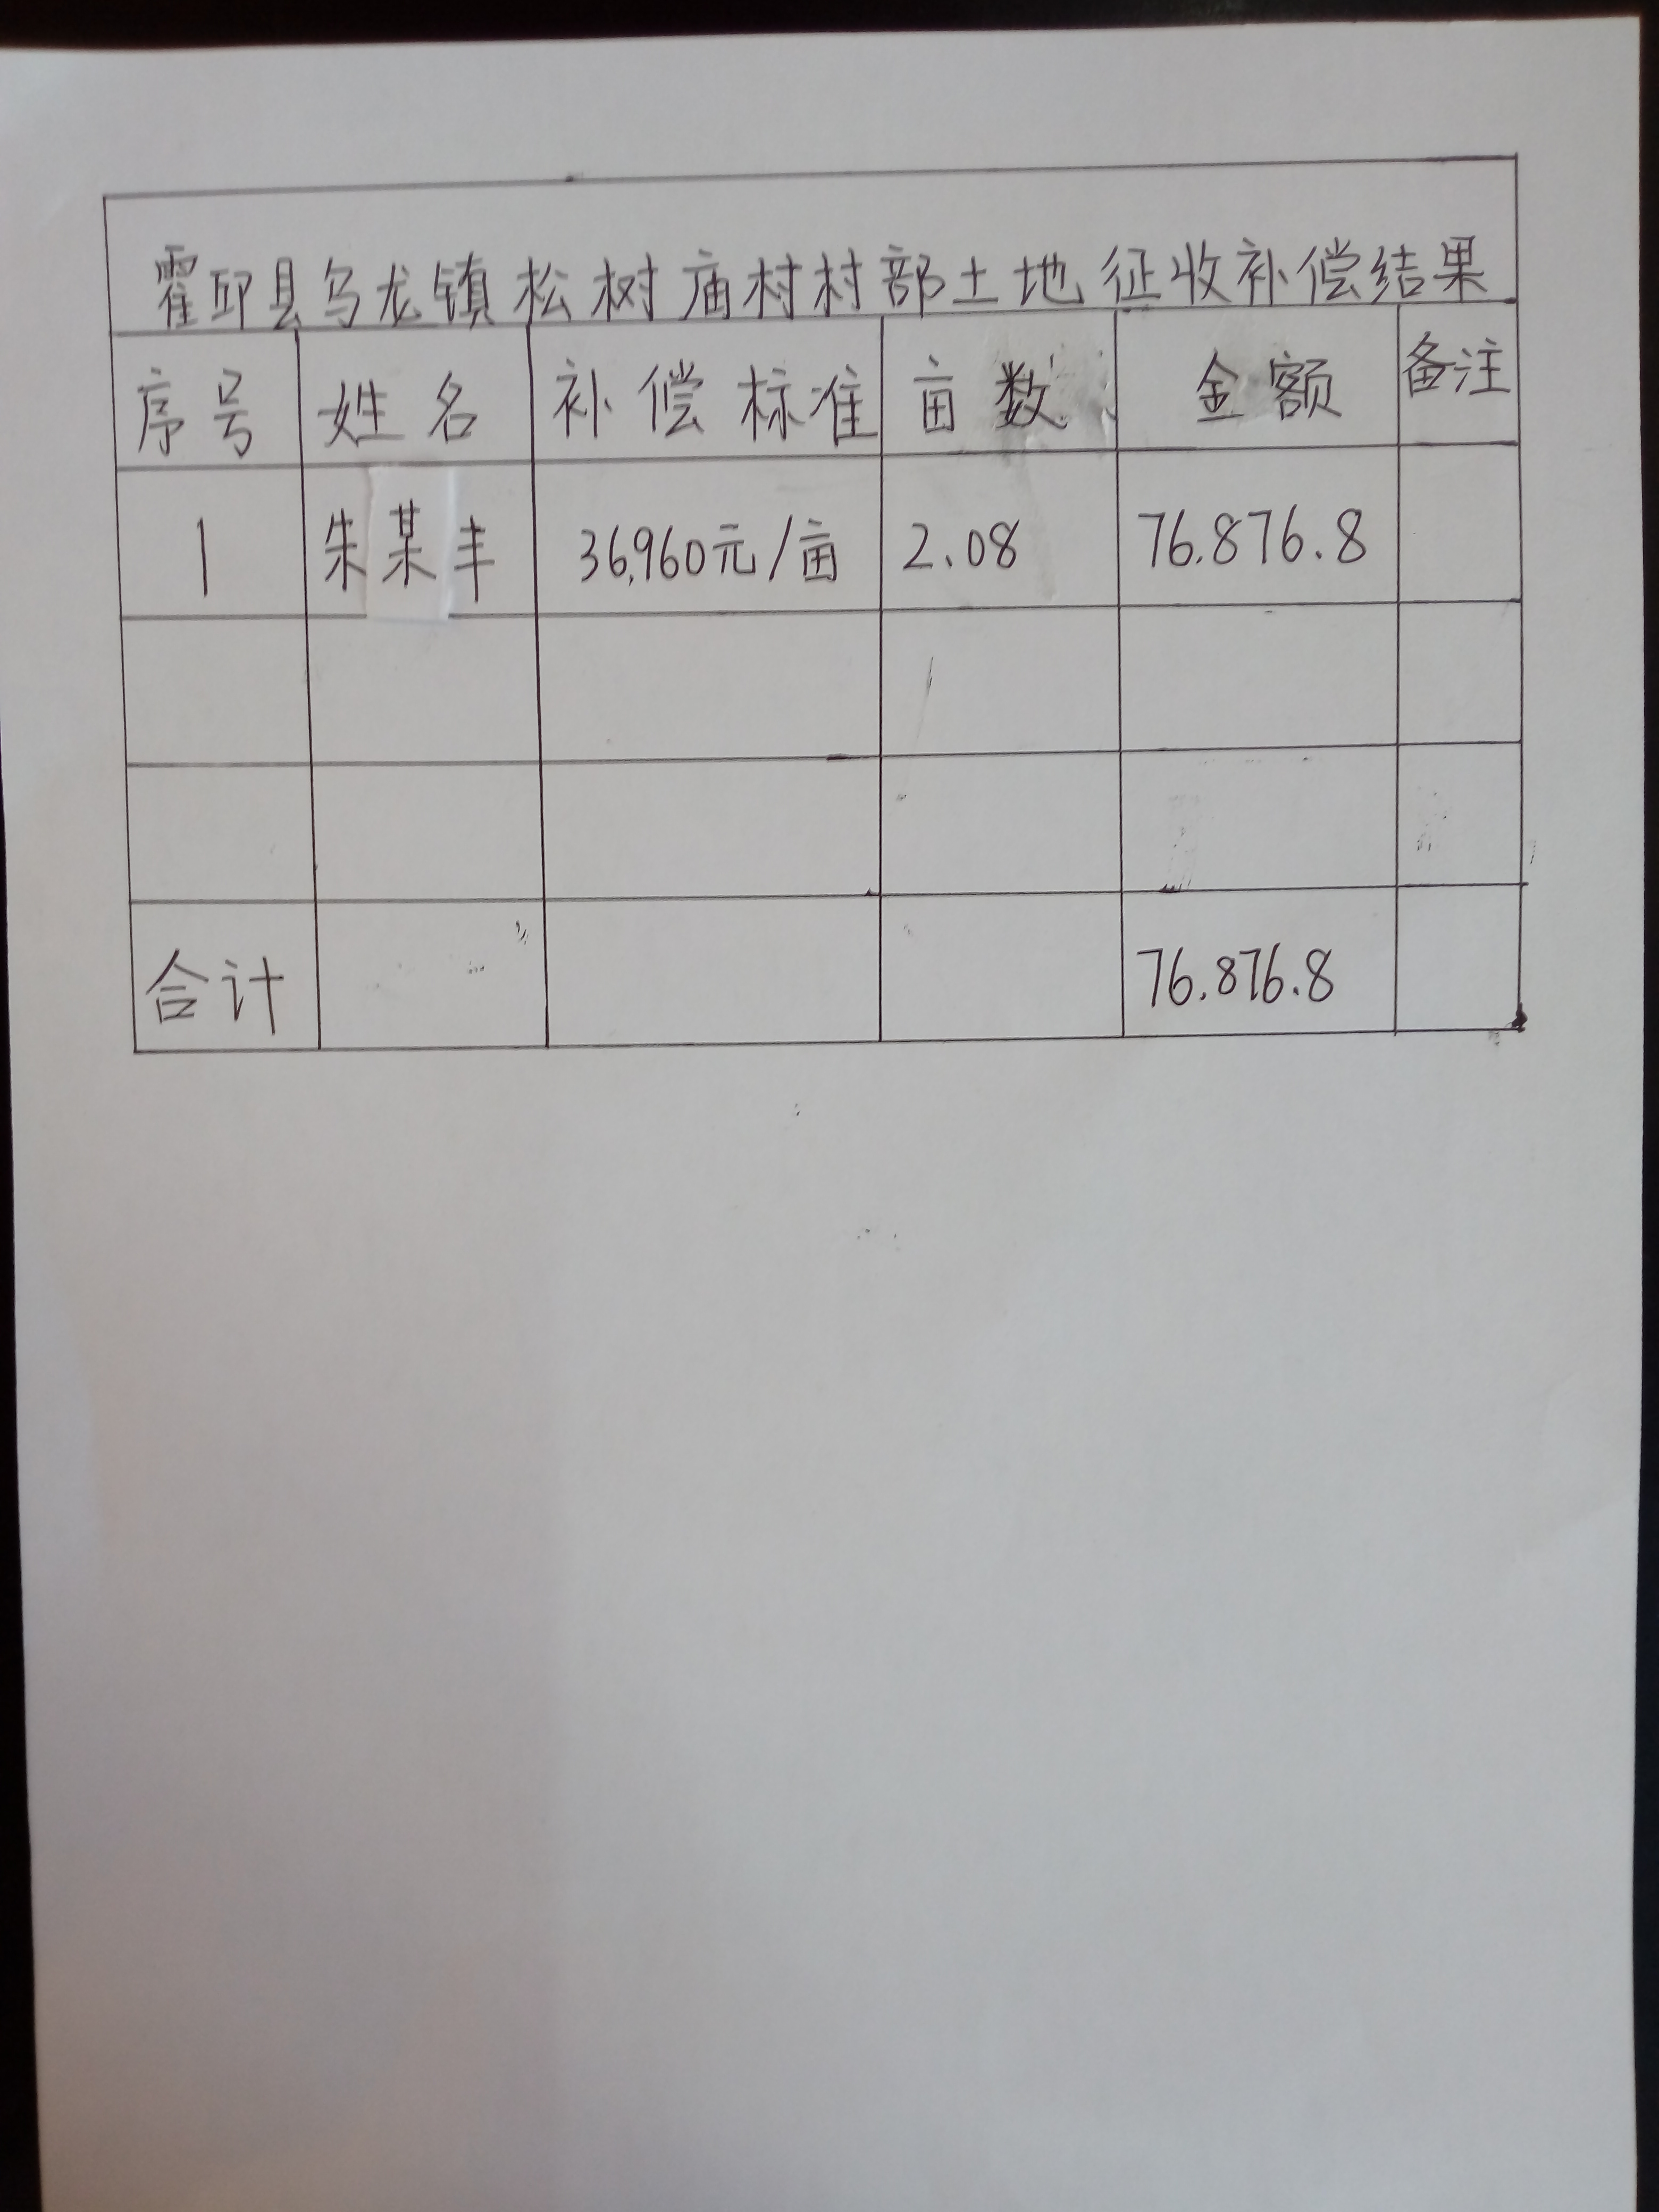 霍邱县乌龙镇松树庙村村部土地征收补偿结果
序号 姓名 补偿标准 亩数 金额 备注
1 朱某丰 36,960元/亩 2.08 76.876.8
合计 76.876.8